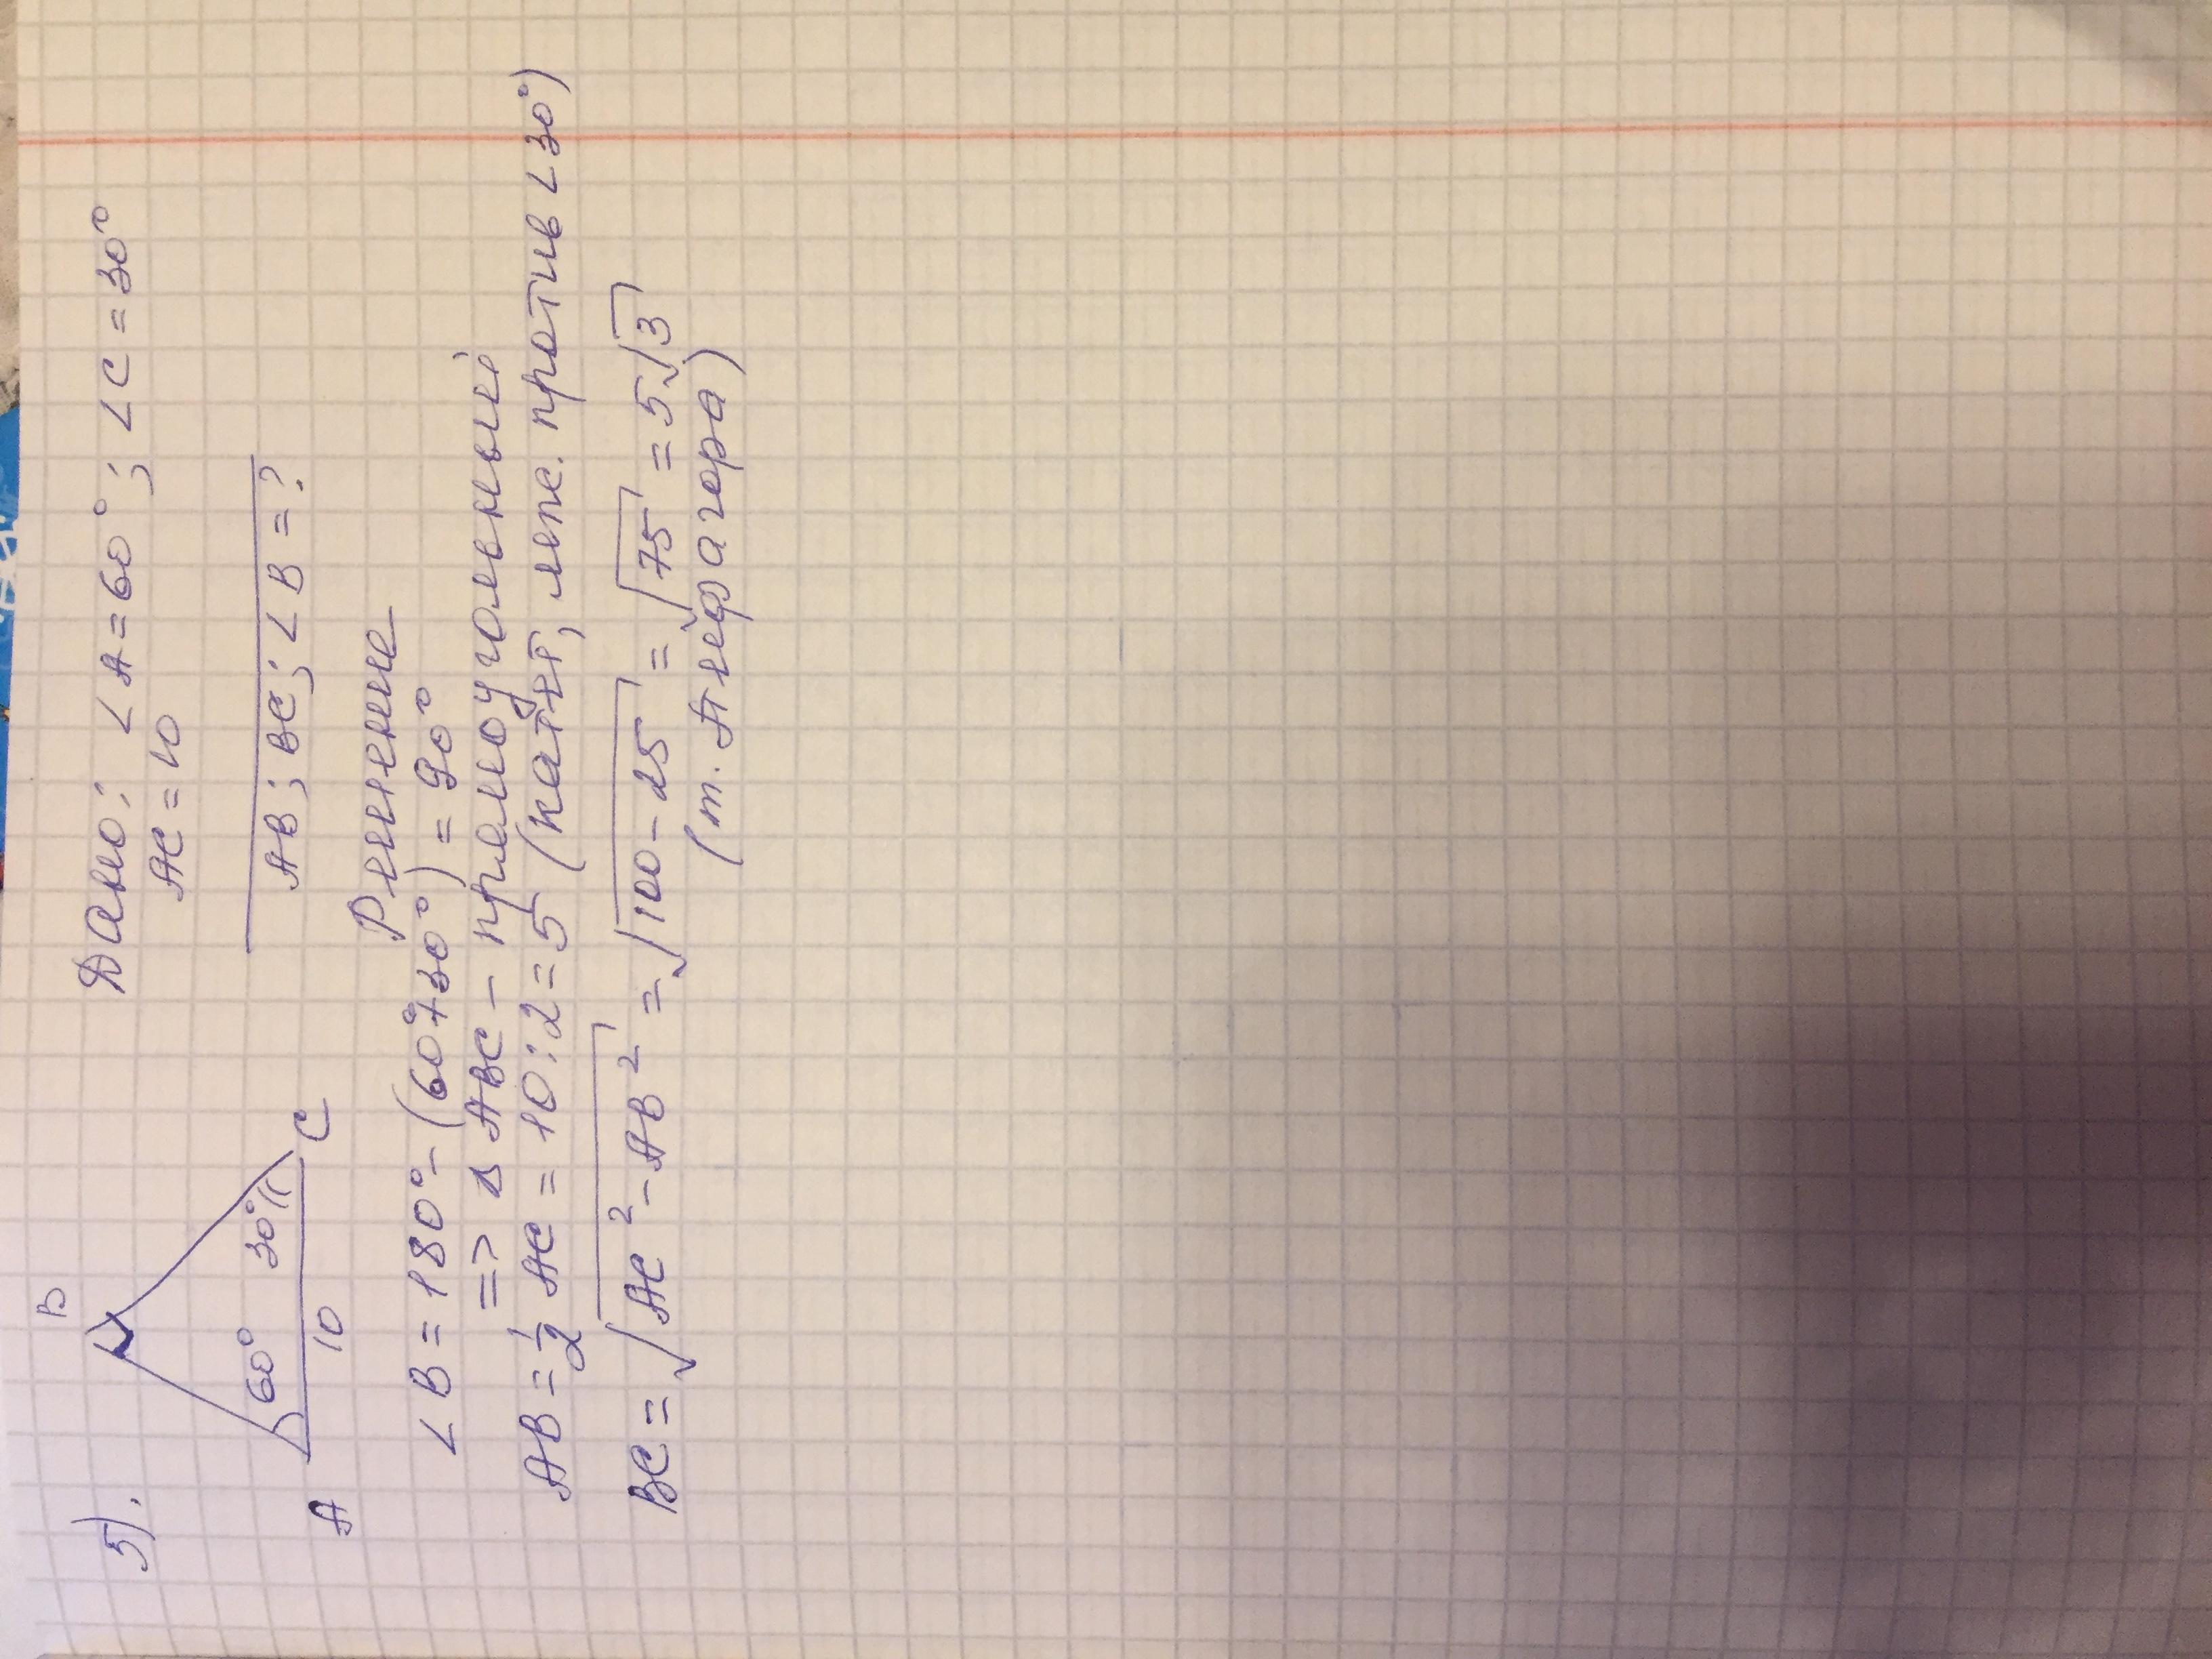 5).
B
60°
30°
A
10
C
Дано: ∠A = 60°; ∠C = 30°
AC = 10
AB; BC; ∠B = ?
Решение
∠B = 180° - (60° + 30°) = 90°
=> Δ ABC - прямоугольный
AB = 1/2 AC = 10 : 2 = 5 (катет, леж. против ∠30°)
BC = √AC² - AB² = √100 - 25 = √75 = 5√3
(т. Пифагора)